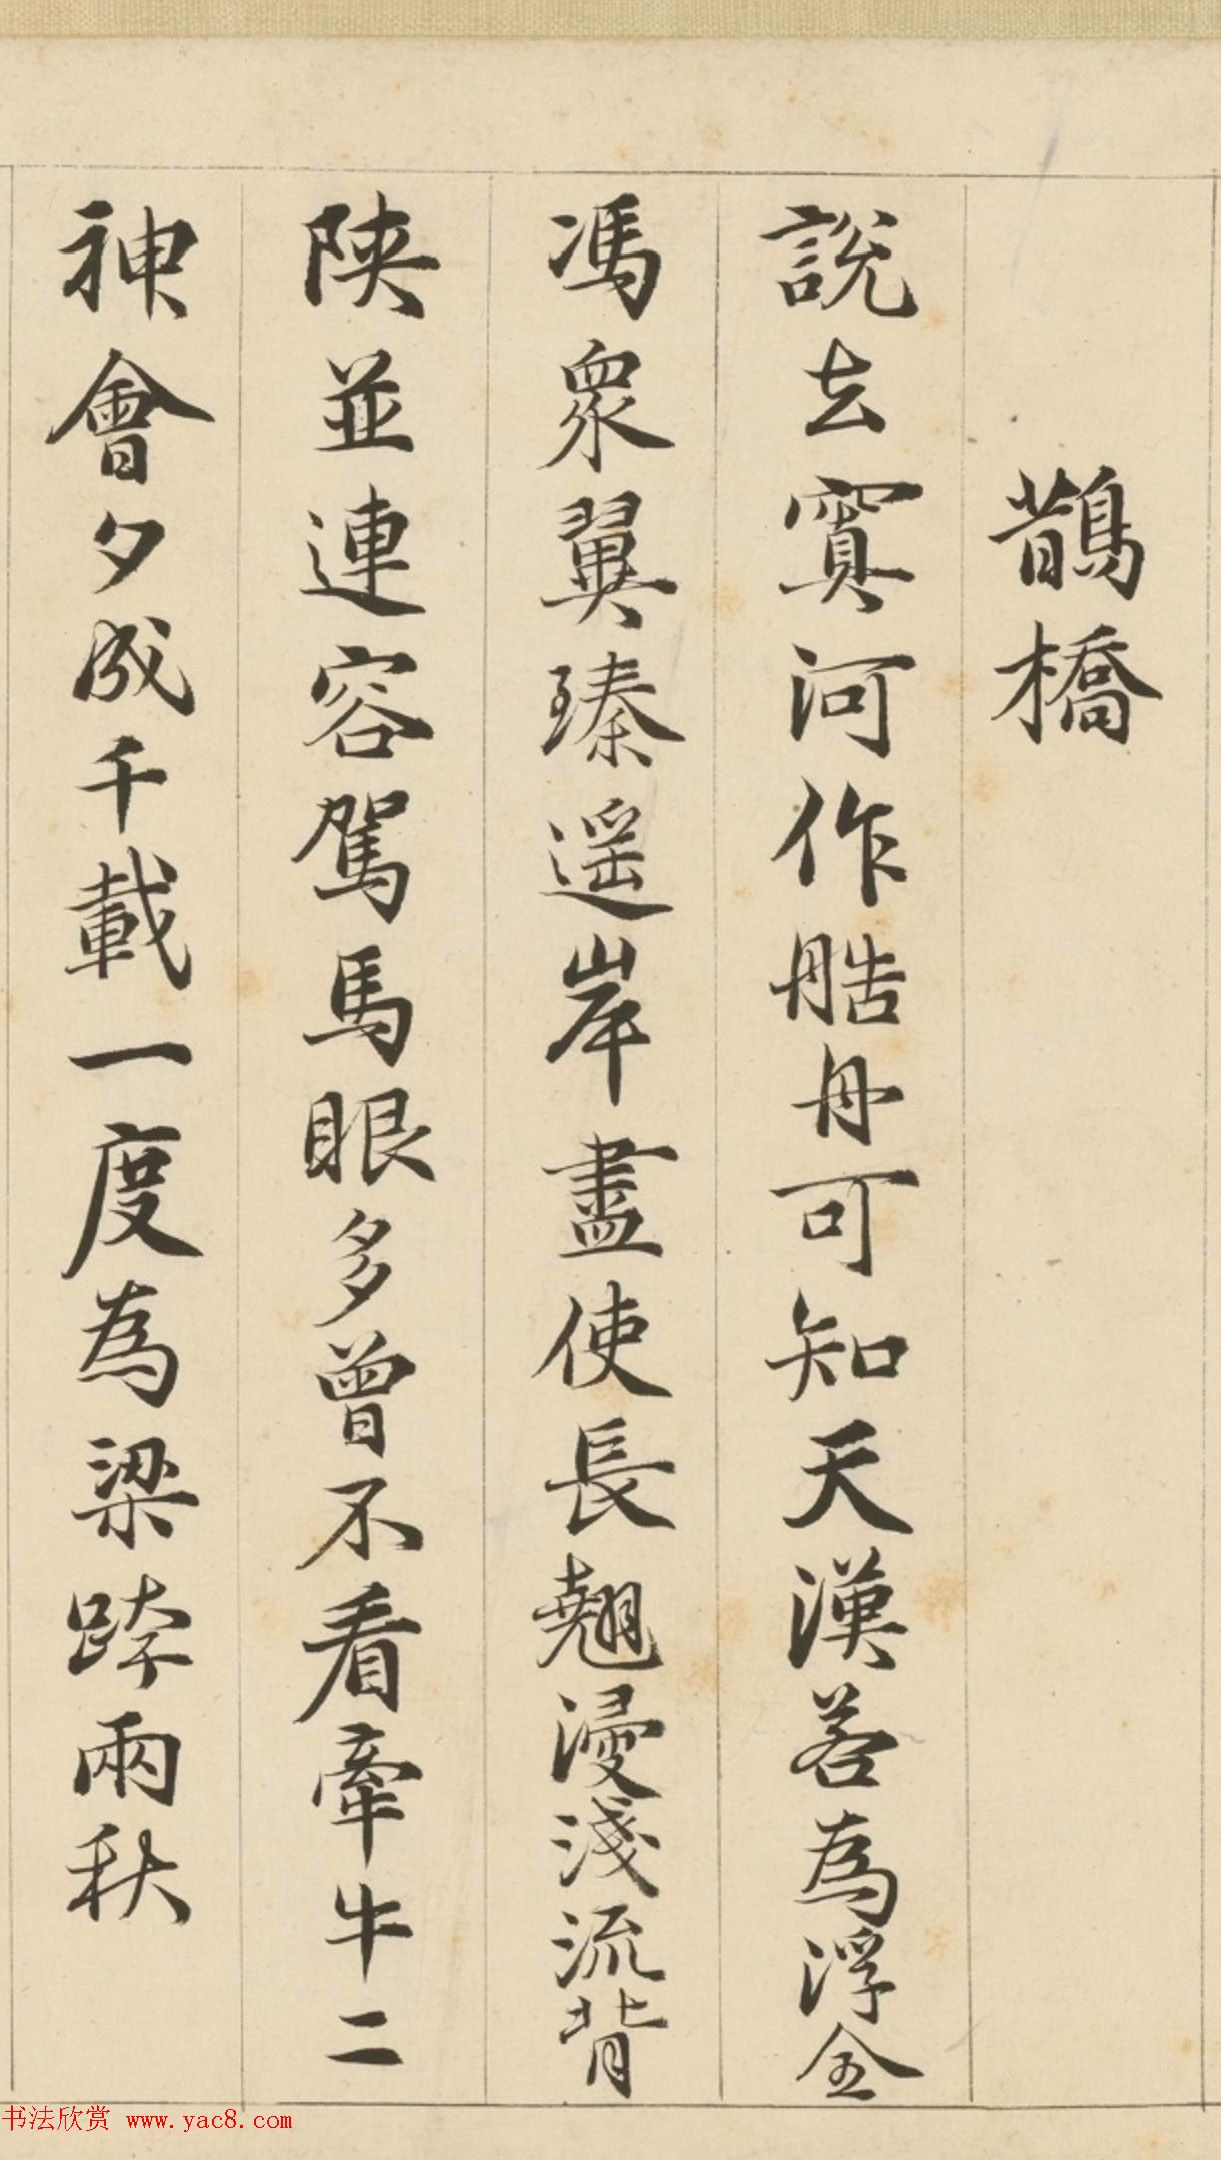 鵲橋
說去寘河作䑩舟可知天漢若為浮全
馮衆翼臻遥岸盡使長翹漫淺流背
陝並連容駕馬眼多曾不看牽牛二
神會夕成千載一度為梁跨兩秋
书法欣赏 www.yac8.com